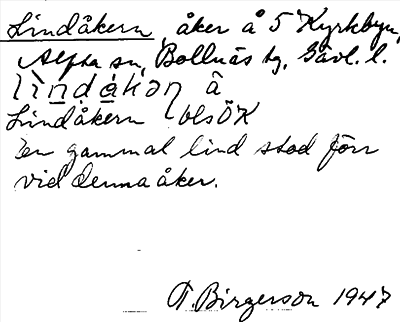 Lindåkern, åker å 5 Kyrkbyn,
Alfta sn, Bollnäs tg, Gävl. l.
lìndákən å
Lindåkern blsÖK
En gammal lind stod förr
vid denna åker.
T. Birgerson 1947